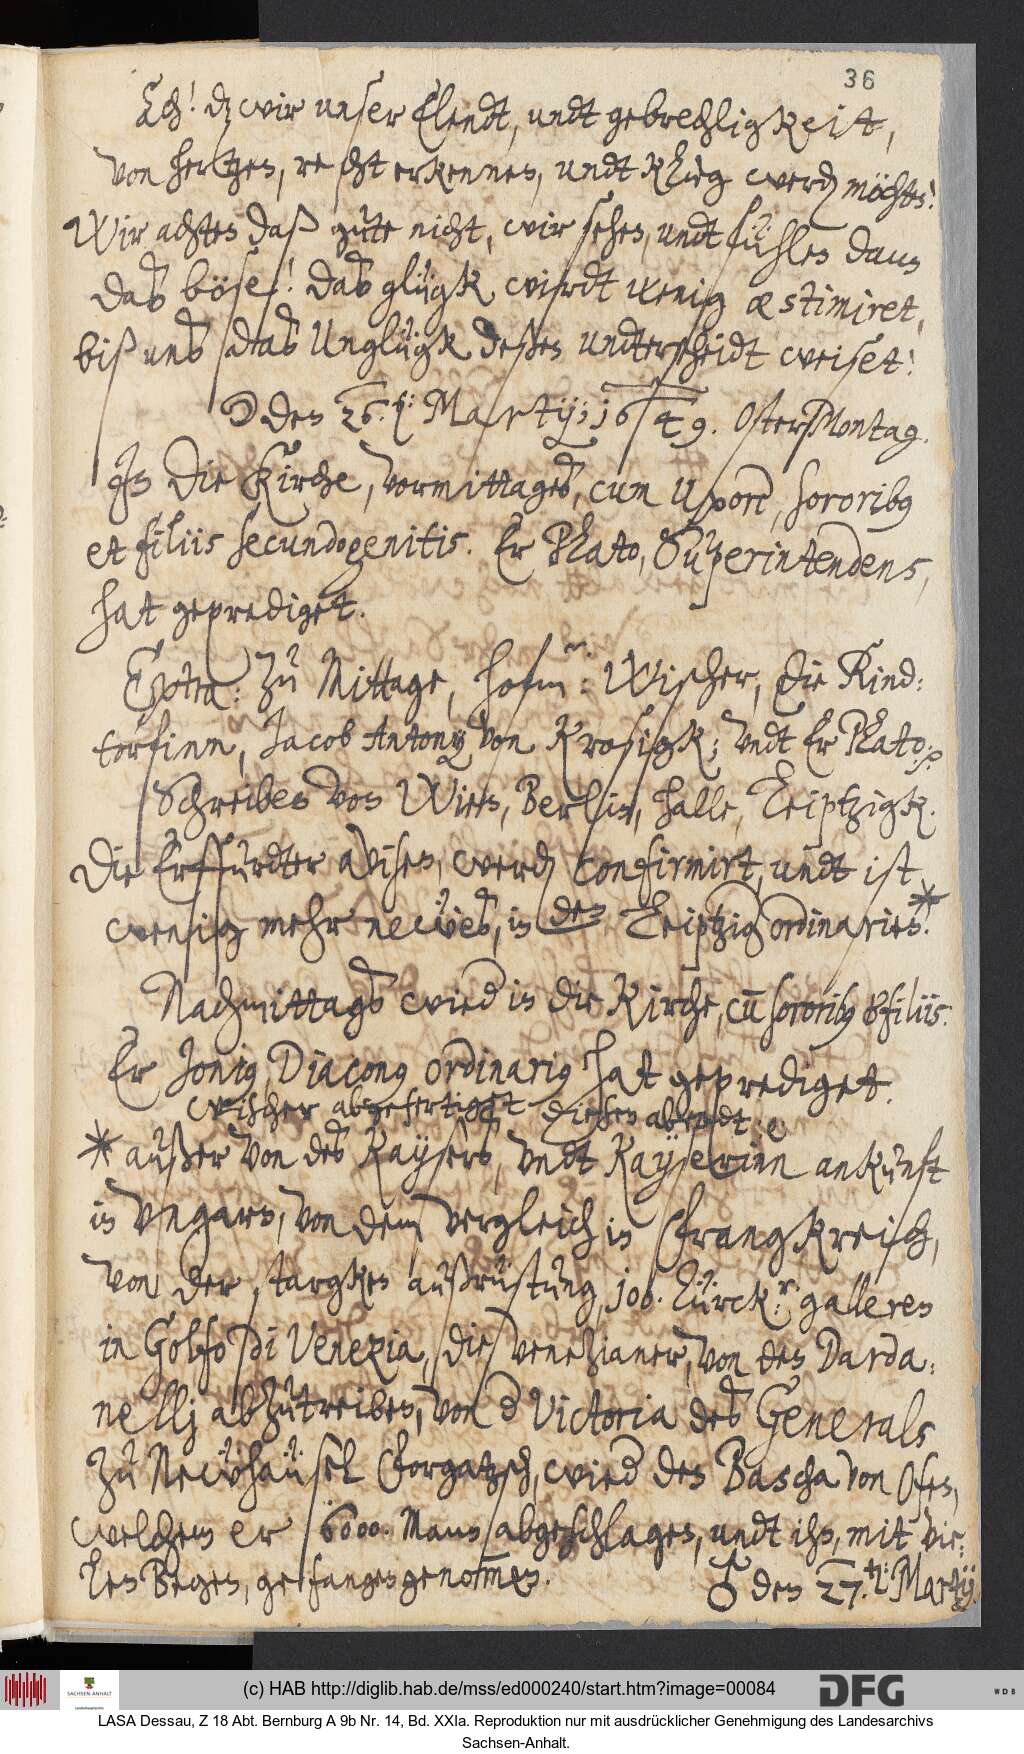 36
Ach! dz wir unser Elendt, undt gebrechligkeit,
von hertzen, recht erkennen, undt klug werden möchten!
Wir achten daß gute nicht, wir sehen, undt fühlen dann
das böse! das glügk wirdt wenig æstimiret,
biß uns das Unglügk deßen undterscheidt weiset!
☽ den 26. Martij; 1649. OsterMontag.
In die Kirche, vormittages, cum Uxore, sororibus
et filiis secundogenitis. Er Plato, Superintendens,
hat geprediget.
Extra: Zu Mittage, hofm: Wischer, die Rind-
torfinn, Jacob Antony von Krosigk; undt Er Plato. p
Schreiben von Wien, Berlin, halle, Leiptzigk.
Die Erffurdter avisen, werden confirmirt, undt ist
wenig mehr newes, in den Leiptzig ordinarien.*
Nachmittags wied in die Kirche, cū sororibus & filiis.
Er Jonius, Diaconus ordinarius hat geprediget.
Wischer abgefertiget diesen abendt
* außer von des Kaysers, undt Kayserinn ankunft
in Ungarn, von dem vergleich in Frangkreich,
von der stargken außrüstung, 100. Türck: galleren
in Golfo di Venezia, die Venetzianer, von den Darda-
nellj abzutreiben, von d Victoria des Generals
zu Newhäusel Forgatzsch, wied den Bascha von Ofen,
welchem er 6000. Mann abgeschlagen, undt ihn, mit vie-
len Begen, gefangen genommen.
♂ den 27. Martij
(c) HAB http://diglib.hab.de/mss/ed000240/start.htm?image=00084
SACHSEN-ANHALT
DFG
WDB
LASA Dessau, Z 18 Abt. Bernburg A 9b Nr. 14, Bd. XXIa. Reproduktion nur mit ausdrücklicher Genehmigung des Landesarchivs
Sachsen-Anhalt.